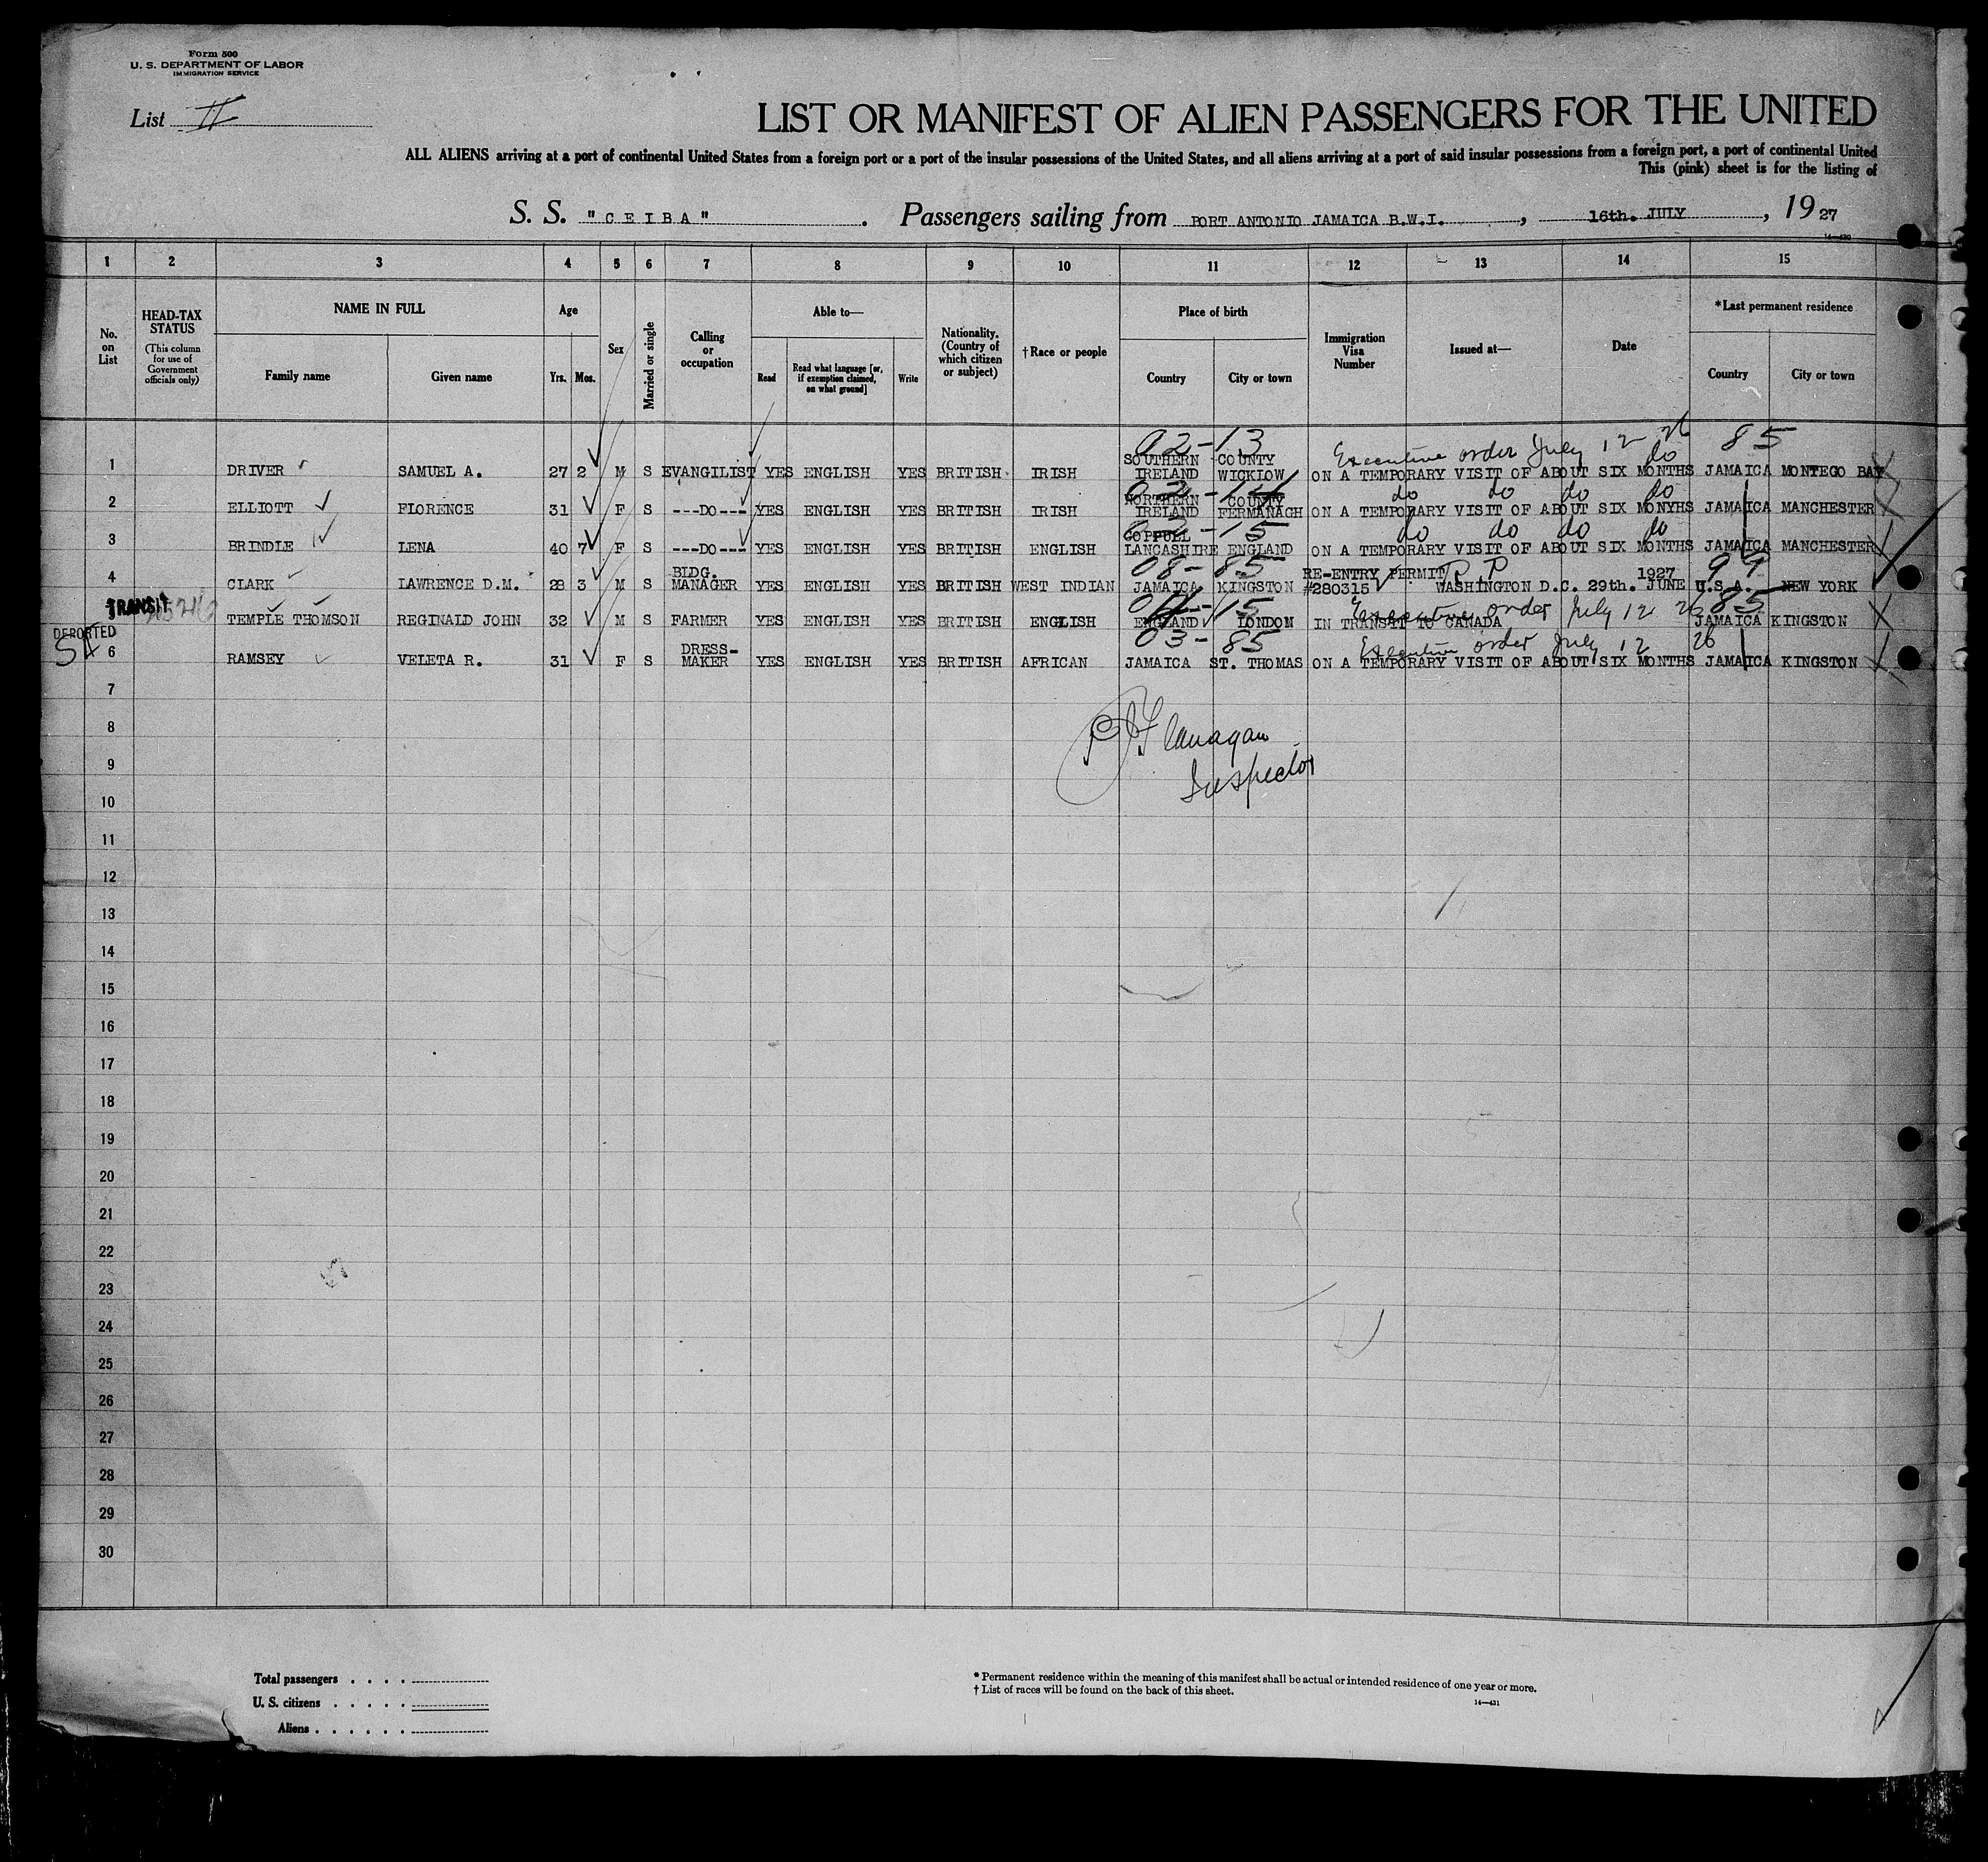 Form 500
U. S. DEPARTMENT OF LABOR
IMMIGRATION SERVICE
List II
LIST OR MANIFEST OF ALIEN PASSENGERS FOR THE UNITED
ALL ALIENS arriving at a port of continental United States from a foreign port or a port of the insular possessions of the United States, and all aliens arriving at a port of said insular possessions from a foreign port, a port of continental United
This (pink) sheet is for the listing of
S. S. "CEIBA". Passengers sailing from PORT ANTONIO JAMAICA B.W.I., 16th. JULY, 1927
1 2 3 4 5 6 7 8 9 10 11 12 13 14 15
No. on List
HEAD-TAX STATUS (This column for use of Government officials only)
NAME IN FULL
Family name
Given name
Age
Yrs. Mos.
Sex
Married or single
Calling or occupation
Able to—
Read
Read what language [or, if exemption claimed, on what ground]
Write
Nationality. (Country of which citizen or subject)
†Race or people
Place of birth
Country
City or town
Immigration Visa Number
Issued at—
Date
*Last permanent residence
Country
City or town
02-13 Executive order July 12 26 85
do
1 DRIVER SAMUEL A. 27 2 M S EVANGILIST YES ENGLISH YES BRITISH IRISH SOUTHERN IRELAND COUNTY WICKLOW ON A TEMPORARY VISIT OF ABOUT SIX MONTHS JAMAICA MONTEGO BAY
02-14 do do do do
2 ELLIOTT FLORENCE 31 F S ---DO--- YES ENGLISH YES BRITISH IRISH NORTHERN IRELAND COUNTY FERMANAGH ON A TEMPORARY VISIT OF ABOUT SIX MONYHS JAMAICA MANCHESTER
02-15 do do do do
3 BRINDLE LENA 40 7 F S ---DO--- YES ENGLISH YES BRITISH ENGLISH COPPULL LANCASHIRE ENGLAND ON A TEMPORARY VISIT OF ABOUT SIX MONTHS JAMAICA MANCHESTER
08-85 R P 99
4 CLARK LAWRENCE D.M. 28 3 M S BLDG. MANAGER YES ENGLISH YES BRITISH WEST INDIAN JAMAICA KINGSTON RE-ENTRY PERMIT #280315 WASHINGTON D.C. 29th. JUNE 1927 U.S.A. NEW YORK
TRANSIT
15 Executive order July 12 26 85
5 TEMPLE THOMSON REGINALD JOHN 32 M S FARMER YES ENGLISH YES BRITISH ENGLISH ENGLAND LONDON IN TRANSIT TO CANADA JAMAICA KINGSTON
DEPORTED
03-85 Executive order July 12 26
6 RAMSEY VELETA R. 31 F S DRESS-MAKER YES ENGLISH YES BRITISH AFRICAN JAMAICA ST. THOMAS ON A TEMPORARY VISIT OF ABOUT SIX MONTHS JAMAICA KINGSTON
7
8
Flanagan
9
Inspector
10
11
12
13
14
15
16
17
18
19
20
21
22
23
24
25
26
27
28
29
30
Total passengers . . . .
U. S. citizens . . . . .
Aliens . . . . . .
* Permanent residence within the meaning of this manifest shall be actual or intended residence of one year or more.
† List of races will be found on the back of this sheet.
14—431